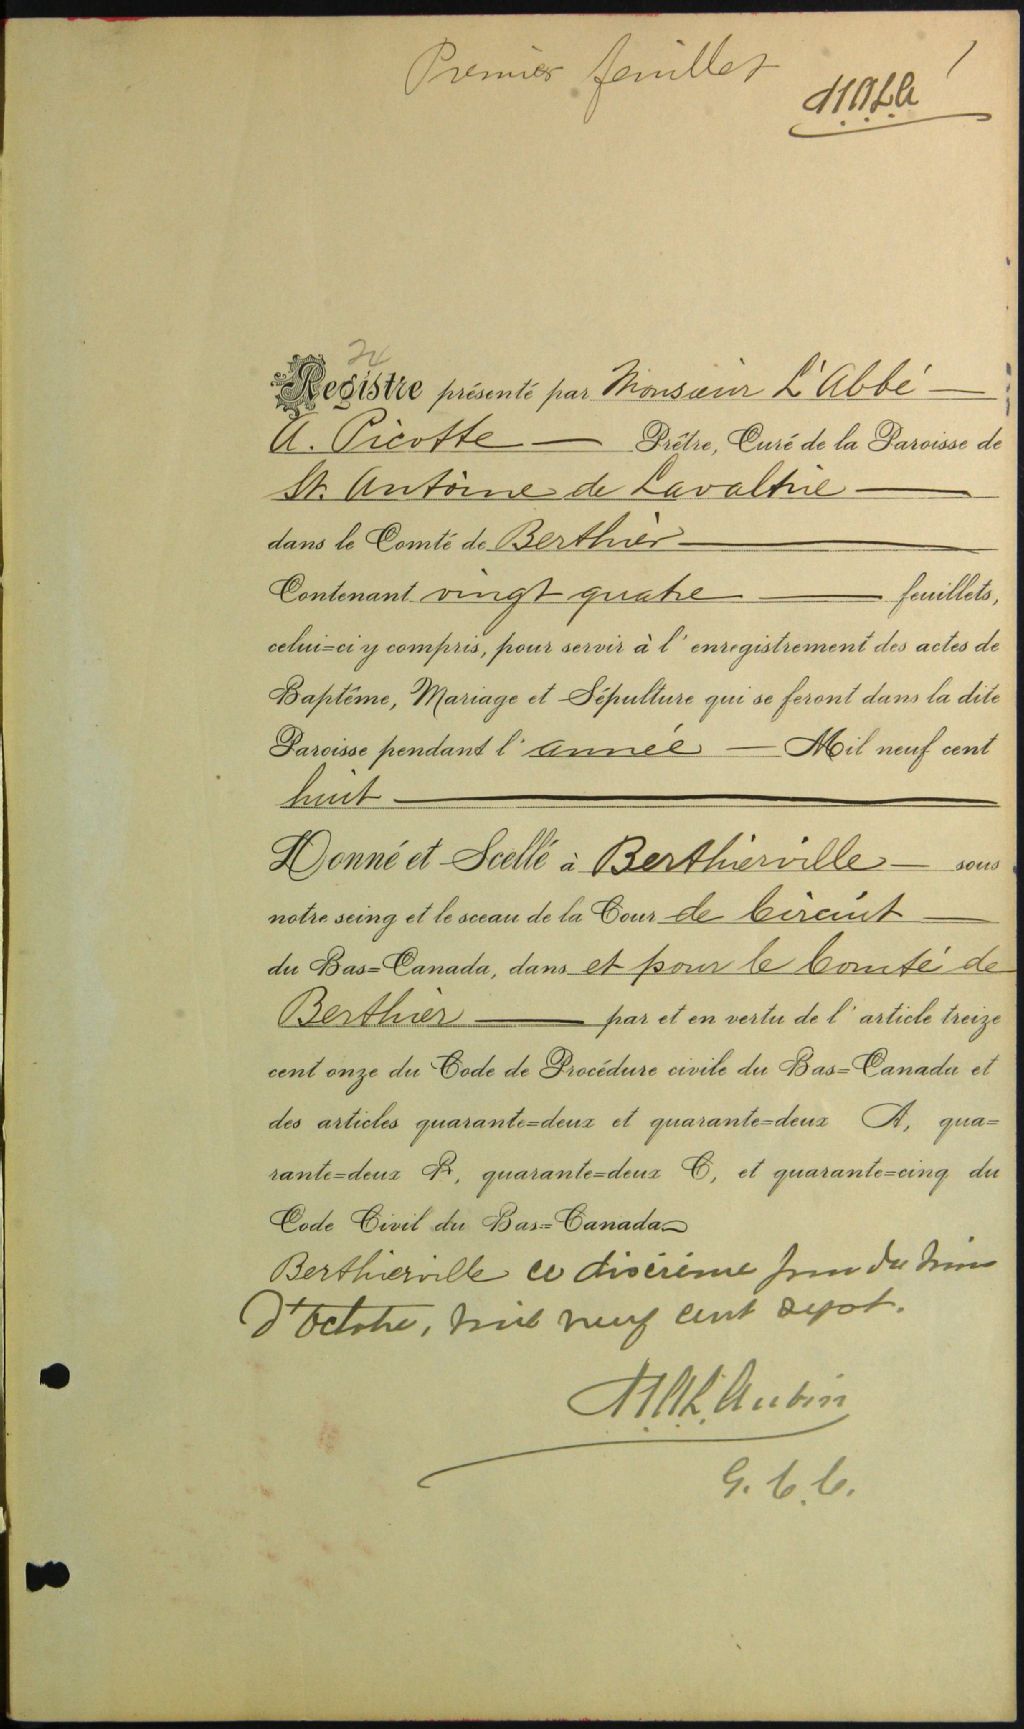 Premier feuillet
1
Registre présenté par Monsieur L'Abbé —
A. Picotte — Prêtre, Curé de la Paroisse de
St. Antoine de Lavaltrie —
dans le Comté de Berthier —
Contenant vingt quatre — feuillets,
celui=ci y compris, pour servir à l'enregistrement des actes de
Baptême, Mariage et Sépulture qui se feront dans la dite
Paroisse pendant l'année — Mil neuf cent
huit —
Donné et Scellé à Berthierville — sous
notre seing et le sceau de la Cour de Circuit —
du Bas=Canada, dans et pour le Comté de
Berthier — par et en vertu de l'article treize
cent onze du Code de Procédure civile du Bas=Canada et
des articles quarante=deux et quarante=deux A, qua=
rante=deux B, quarante=deux C, et quarante=cinq du
Code Civil du Bas=Canada
Berthierville ce dixième jour du mois
d'Octobre, mil neuf cent sept.
Aubin
G. C. C.